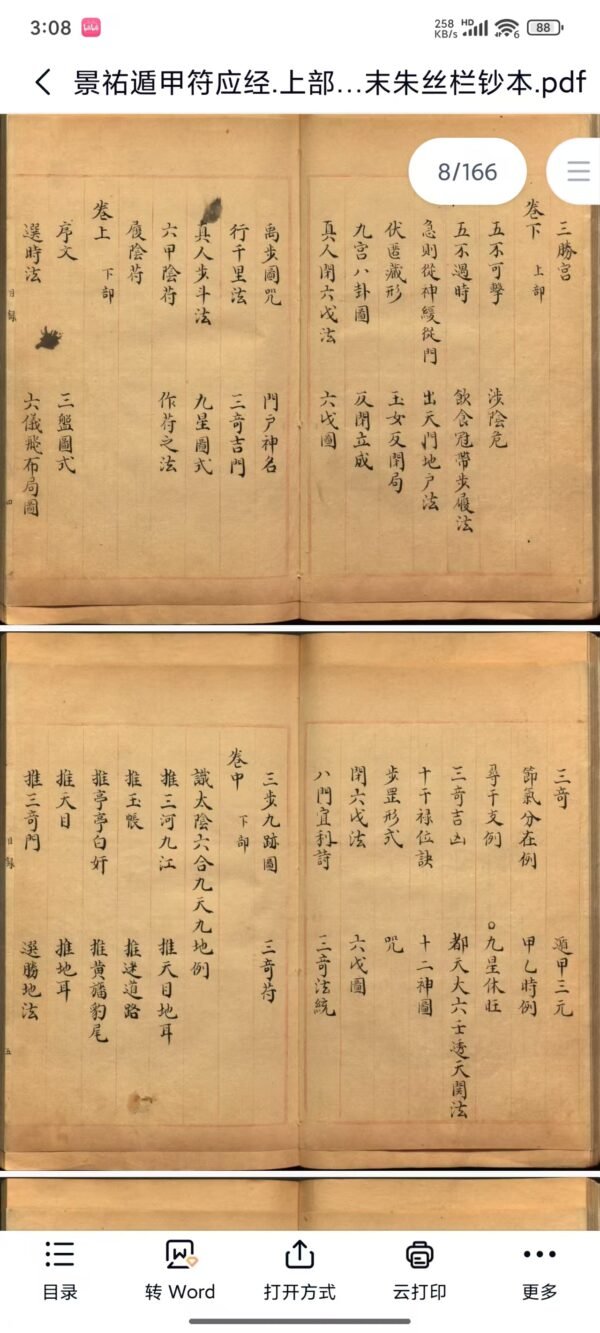 3:08
258 KB/s
HD
6
88
景祐遁甲符应经.上部…末朱丝栏钞本.pdf
8/166
三勝宮
卷下 上部
五不可擊 涉陰危
五不遇時 飲食冠帶步履法
急則從神緩從門 出天門地户法
伏匿藏形 玉女反閉局
九宮八卦圖 反閉立成
真人閉六戊法 六戊圖
禹步圖咒 門户神名
行千里法 三奇吉門
真人步斗法 九星圖式
六甲陰符 作符之法
履陰符
卷上 下部
序文 三盤圖式
選時法 六儀飛布局圖
目錄
四
三奇 遁甲三元
節氣分在例 甲乙時例
尋干支例 九星休旺
三奇吉凶 都天大六壬透天関法
十干禄位訣 十二神圖
步罡形式 咒
閉六戊法 六戊圖
八門宜利詩 三奇法統
三步九跡圖 三奇符
卷中 下部
識太陰六合九天九地例
推三河九江 推天目地耳
推玉帳 推迷道路
推亭亭白奸 推黄旛豹尾
推天目 推地耳
推三奇門 選勝地法
目錄
五
目录
转 Word
打开方式
云打印
更多